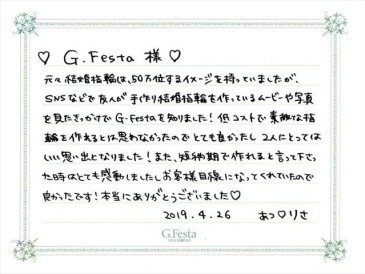 ♡ G.Festa 様 ♡
元々結婚指輪は、50万位するイメージを持っていましたが、
SNSなどで友人が手作り結婚指輪を作っているムービーや写真
を見たきっかけでG.Festaを知りました！低コストで素敵な指
輪を作れるとは思わなかったのでとても良かったし2人にとっては
いい思い出となりました！また、短納期で作れると言って下さっ
た時はとても感動しましたしお客様目線になってくれていたので
良かったです！本当にありがとうございました♡
2019.4.26 あつ♡りさ
G.Festa